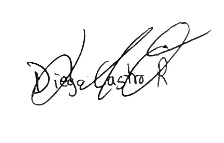 Diego Castro R